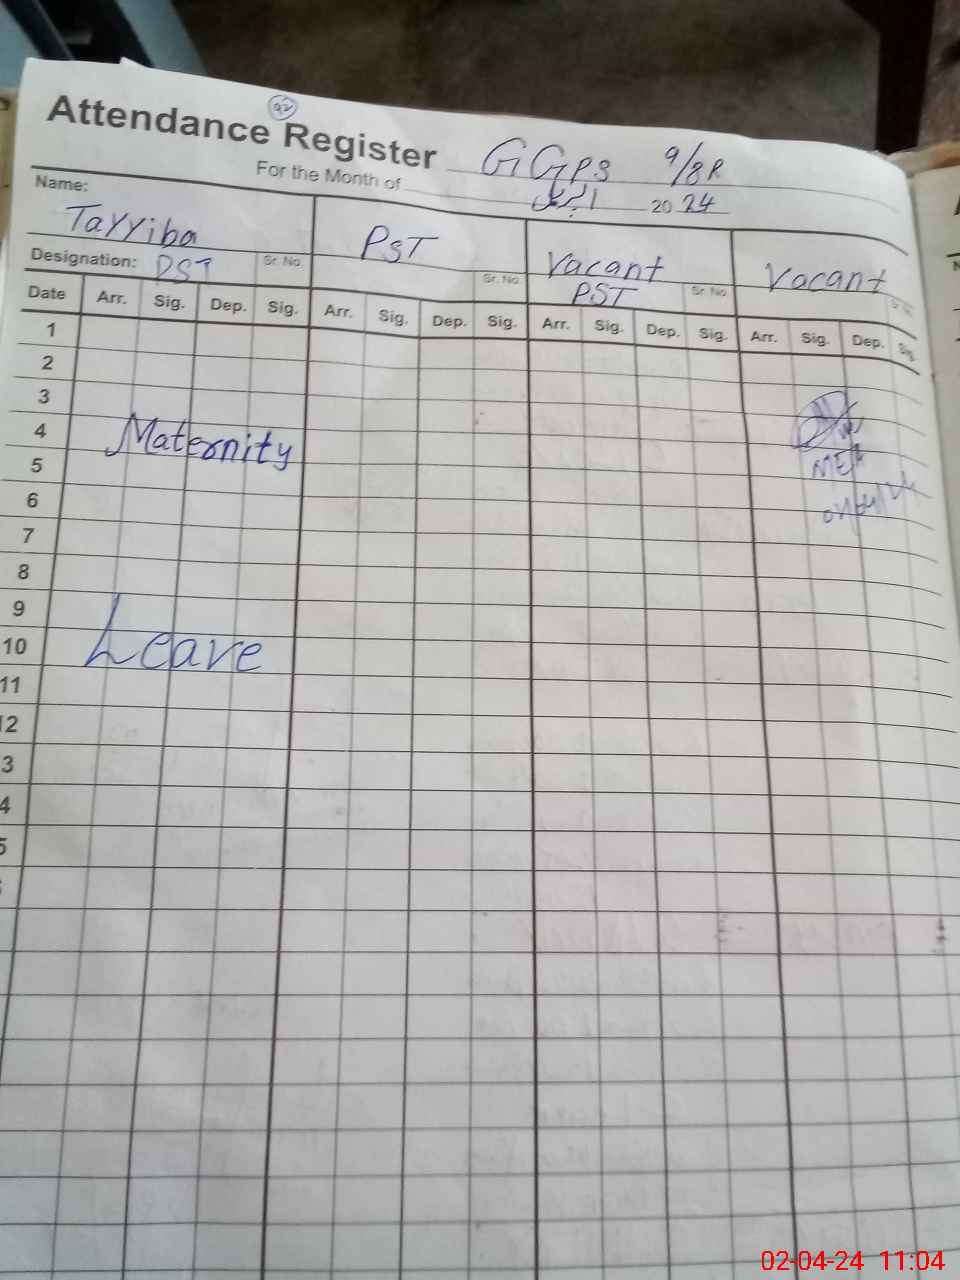 92
Attendance Register GGPS 9/8R
For the Month of اپریل 2024
Name:
Tayyiba PST Vacant Vacant
Designation: PST Sr. No. Sr. No. PST Sr. No. Sr. No.
Date Arr. Sig. Dep. Sig. Arr. Sig. Dep. Sig. Arr. Sig. Dep. Sig. Arr. Sig. Dep. Sig.
1
2
3
4 Maternity
5 MEA
6
7
8
9
10 Leave
11
12
3
4
5
02-04-24 11:04